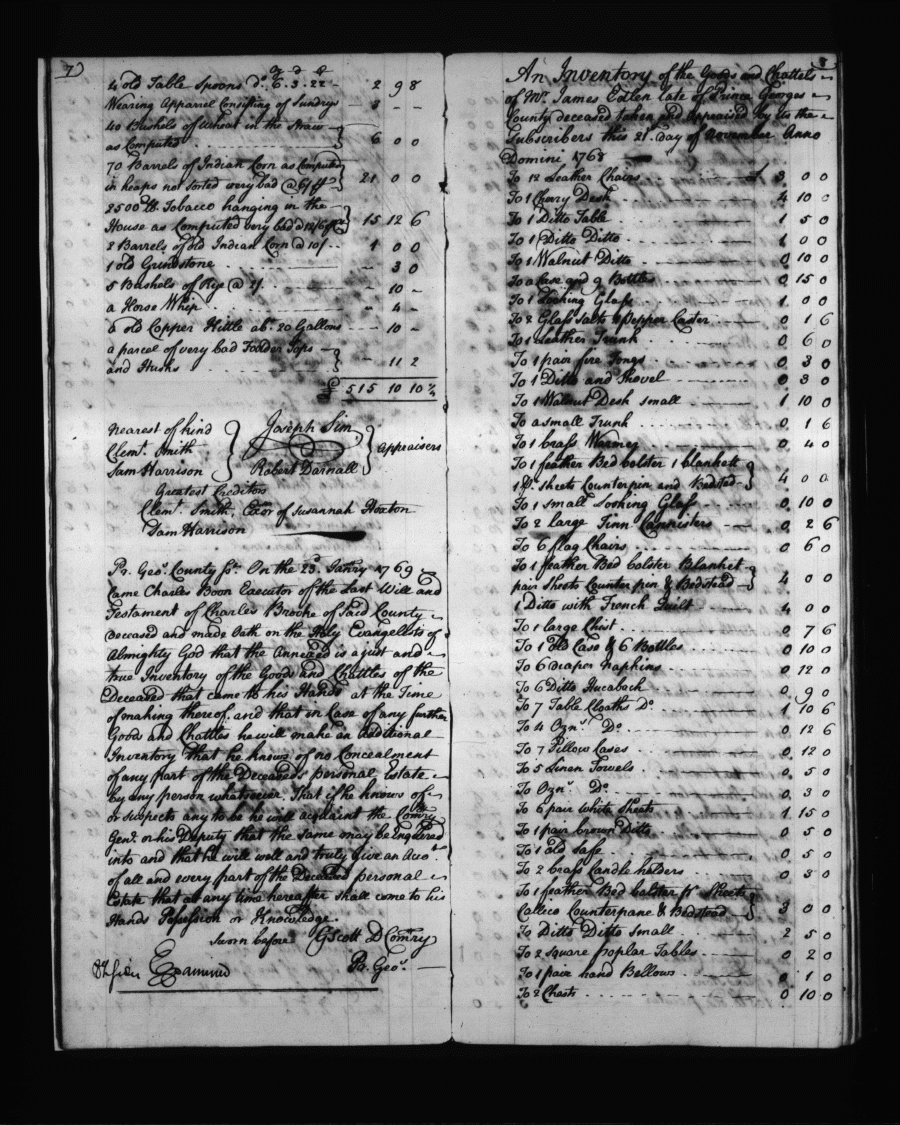 7)
4 old Table Spoons Do. 6.3.22 - 2 9 8
Wearing Apparrel Consisting of Sundrys - 3 - -
40 Bushels of Wheat in the Straw
as Computed 6 0 0
70 Barrels of Indian Corn as Computed
in heaps not sorted very bad @ 6/ 21 0 0
2500 lb Tobacco hanging in the
House as Computed very bad @ 12/6 15 12 6
2 Barrels of old Indian Corn @ 10/ 1 0 0
1 old Grindstone 3 0
5 Bushels of Rye @ 2/ - 10 -
a Horse Whip - 4 -
6 old Copper Kittle abt. 20 Gallons - 10 -
a parcel of very bad Fodder Tops
and Husks - 11 2
£ 515 10 10½
nearest of kind
Clemt. Smith
Sam Harrison
Joseph Sim
Robert Darnall
Appraisers
Greatest Creditors
Clemt. Smith, Exor of Susannah Hoxton
Sam Harrison
Pr. Geos. County Sct. On the 23d. Janry 1769
Came Charles Boon Executor of the Last Will and
Testament of Charles Brooke of said County
Deceased and made Oath on the Holy Evangelists of
Almighty God that the Annexed is a just and
true Inventory of the Goods and Chattles of the
Deceased that came to his Hands at the Time
of making thereof. and that in Case of any further
Goods and Chattles he will make an additional
Inventory that he knows of no Concealment
of any part of the Deceaseds personal Estate
by any person whatsoever. That if he knows of
or suspects any to be he will acquaint the Comry
Genl. or his Deputy that the same may be inquired
into and that he will well and truly Give an Acct.
of all and every part of the Deceased personal
Estate that at any time hereafter shall come to his
Hands Possession or Knowledge.
Sworn before GScott D Comry
Pr. Geos.
Examined
8
An Inventory of the Goods and Chattels
of Mr. James Edlen late of Prince Georges
County deceased taken and appraised by Us the
Subscribers this 21st. day of November Anno
Domini 1768
To 12 Leather Chairs £ 3 0 0
To 1 Cherry Desk 4 10 0
To 1 Ditto Table 1 5 0
To 1 Ditto Ditto 1 0 0
To 1 Walnut Ditto 0 10 0
To a Case and 9 Bottles 0 15 0
To 1 Looking Glass 1 0 0
To 2 Glass Salts & Pepper Caster 0 1 6
To 1 Leather Trunk 0 6 0
To 1 pair fire Tongs 0 3 0
To 1 Ditto and Shovel 0 3 0
To 1 Walnut Desk small 1 10 0
To a small Trunk 0 1 6
To 1 brass Warmer 0 4 0
To 1 feather Bed bolster 1 blankett
1 pr. Sheets Counterpin and Bedsted 4 0 0
To 1 small Looking Glass 0 10 0
To 2 large Tinn Cannisters 0 2 6
To 6 flag Chairs 0 6 0
To 1 feather Bed bolster Blanket
pair Sheets Counterpin & Bedstead 4 0 0
1 Ditto with French Quilt 4 0 0
To 1 large Chest 0 7 6
To 1 Old Case & 6 Bottles 0 10 0
To 6 draper Napkins 0 12 0
To 6 Ditto Hucaboch 0 9 0
To 7 Table Cloaths Do. 1 10 6
To 4 Ozns. Do. 0 12 6
To 7 Pillow Cases 0 12 0
To 5 Linen Towels 0 5 0
To Ozns. Do. 0 3 0
To 6 pair white Sheets 1 15 0
To 1 pair brown Ditto 0 5 0
To 1 old safe 0 5 0
To 2 brass Candle holders 0 3 0
To 1 feather Bed bolster pr. Sheets
Callico Counterpane & Bedstead 3 0 0
To Ditto Ditto small 2 5 0
To 2 square poplar Tables 0 2 0
To 1 pair hand Bellows 0 1 0
To 2 Chests 0 10 0